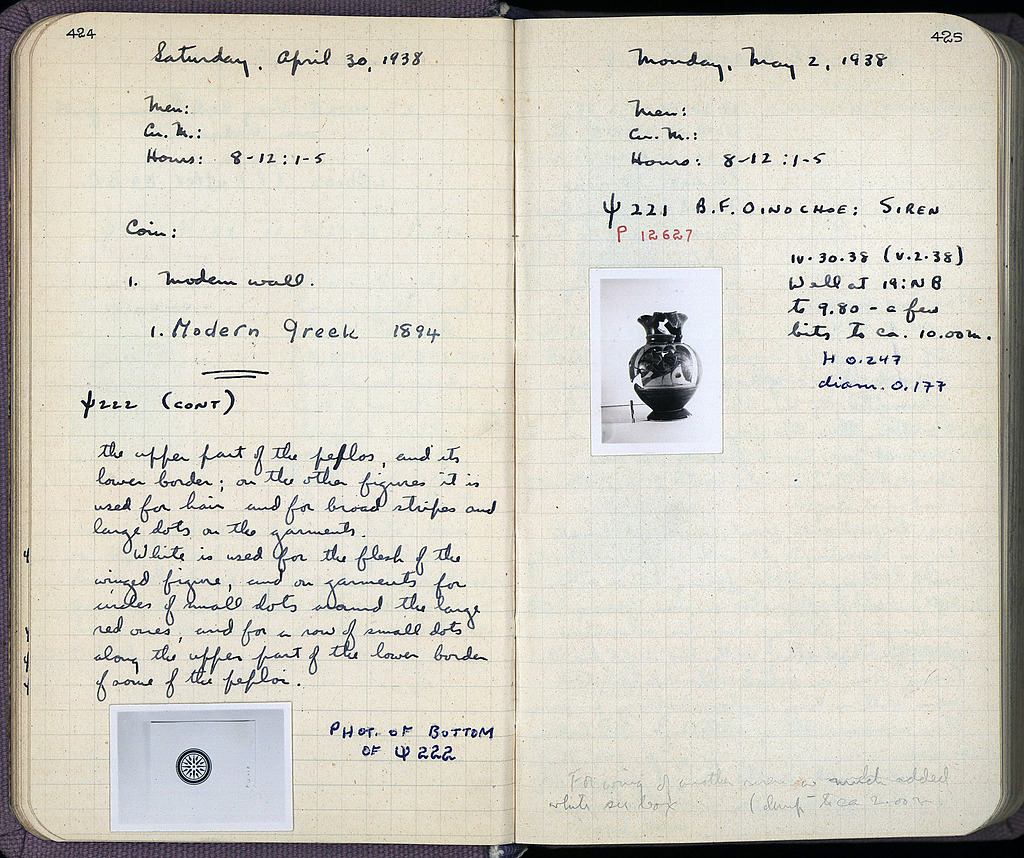 424
Saturday, April 30, 1938
Men:
Cu. M.:
Hours: 8-12 : 1-5
Coin:
1. Modern wall.
1. Modern Greek 1894
Ψ222 (CONT)
the upper part of the peplos, and its
lower border; on the other figures it is
used for hair and for broad stripes and
large dots on the garments.
White is used for the flesh of the
winged figure, and on garments for
circles of small dots around the large
red ones, and for a row of small dots
along the upper part of the lower border
of some of the peploi.
PHOT. OF BOTTOM
OF Ψ 222
425
Monday, May 2, 1938
Men:
Cu. M.:
Hours: 8-12 : 1-5
Ψ 221 B.F. OINOCHOE: SIREN
P 12627
IV.30.38 (V.2.38)
Well at 19:NB
to 9.80 - a few
bits to ca. 10.00m.
H 0.247
diam. 0.177
For wing of another siren with added
white see box (dump to ca 2.00m